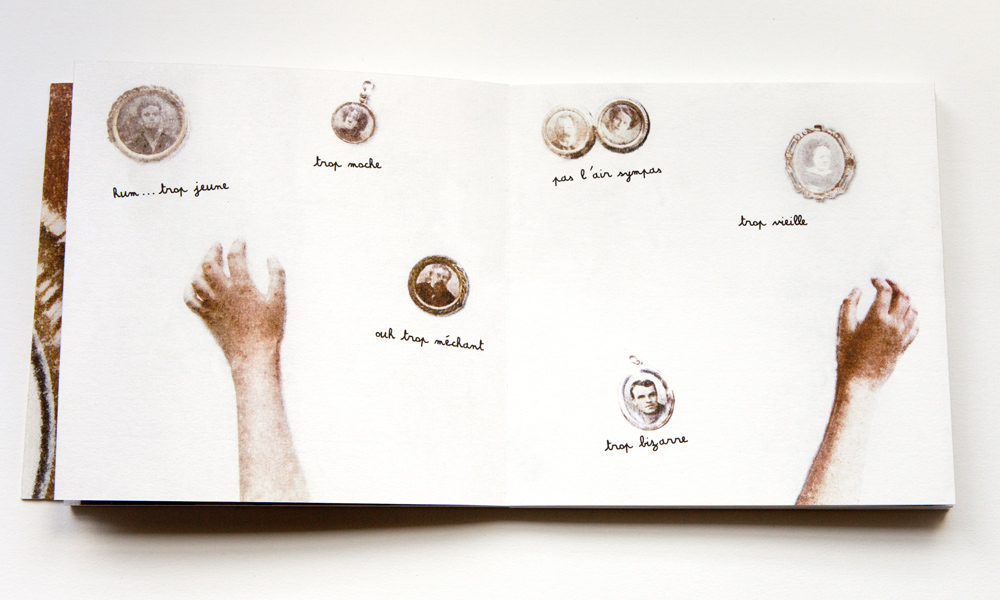 hum... trop jeune
trop moche
ouh trop méchant
pas l'air sympas
trop vieille
trop bizarre